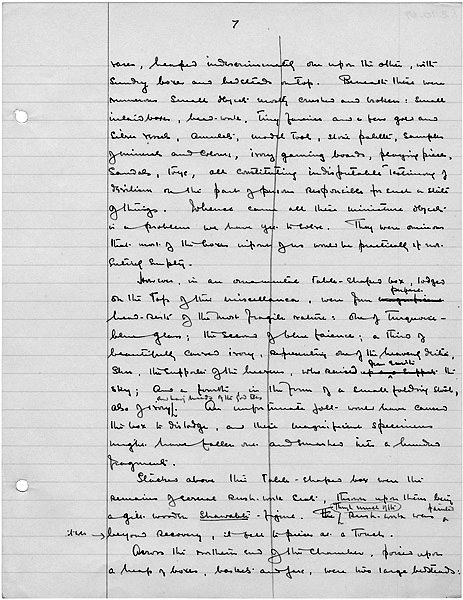 7
vases, heaped indiscriminately one upon the other, with
sundry boxes and bedsteads on top. Beneath these were
numerous small objects mostly crushed and broken: small
inlaid boxes, bead-work, tiny faience and a few gold and
silver vessels, amulets, model tools, stone palette, samples
of minerals and colours, ivory gaming boards, playing pieces,
sandals, toys, all constituting indisputable testimony of
on the part of persons responsible for such a state
of things. Whence came all these miniature objects
is a problem we have yet to solve. They were ominous
that most of the boxes before us would be practically if not
entirely empty.
However, in an ornamental table-shaped box, lodged
on the top of this miscellanea, were four
head-rests of the most fragile nature: one of turquoise-
blue glass; the second of blue faience; a third of
beautifully carved ivory, representing one of the heavenly deities,
Shu, the supporter of the heavens, who carried the
sky; and a fourth in the form of a small folding stool,
also of ivory. An unfortunate jolt would have caused
the box to dislodge, and these magnificent specimens
might have fallen over and smashed into a hundred
fragments.
Stacked above this table-shaped box were the
remains of several rush-work seats, thrown upon them being
a gilt wooden Shawabti-figure. Though much of the painted
rush-work were
beyond recovery, it fell to pieces at a touch.
Across the northern end of the chamber, poised upon
a heap of boxes, baskets and jars, were two large bedsteads: